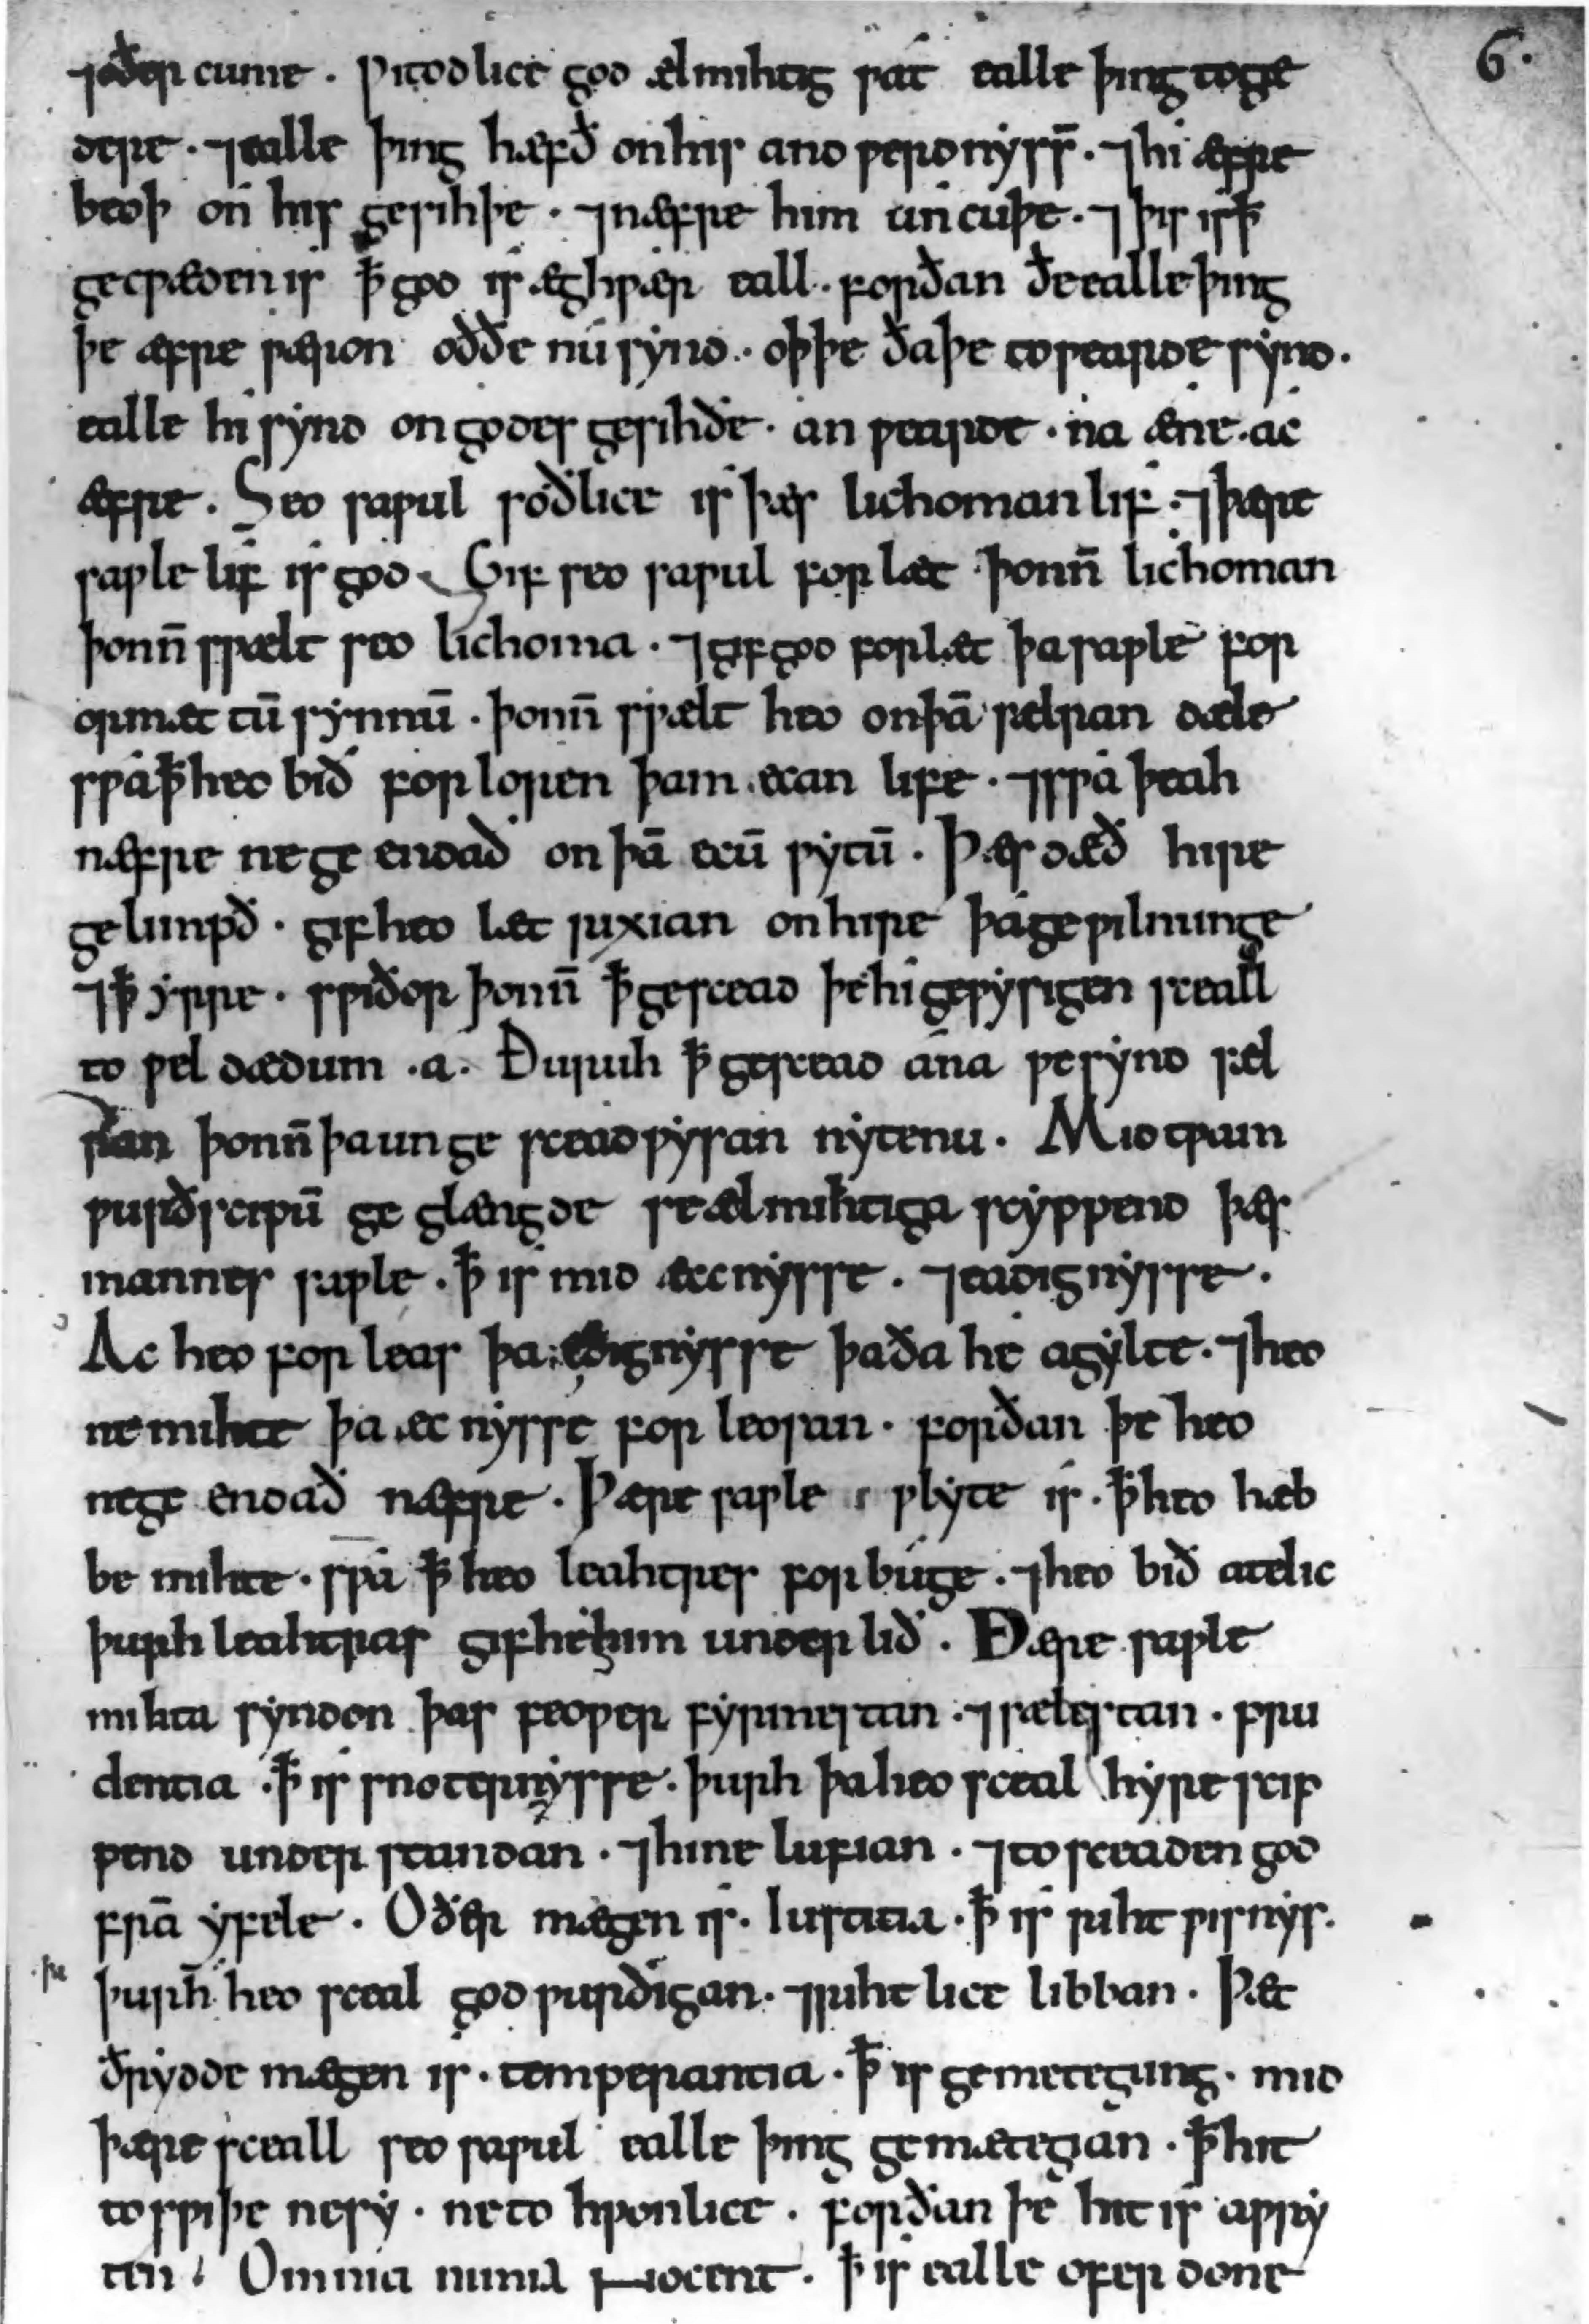 6·
⁊ oðer cume . Ƿitodlice god ælmihtig ƿat ealle þing toge
dere · ⁊ ealle þing hæfð on his andƿerdnyss̄ · ⁊ hi æfre
beoþ on his gesihþe · ⁊ næfre him uncuþe · ⁊ þis is ꝥ
gecƿæden is ꝥ god is æghƿær eall · forðan ðe ealle þing
þe æfre ƿæron oððe nu synd · oþþe ða þe toƿearde synd ·
ealle hi synd on godes gesihðe · anƿearde · na æne · ac
æfre . Seo saƿul soðlice is þæs lichoman lif · ⁊ þære
saƿle lif is god . Gif seo saƿul forlæt þonn̄ lichoman
þonn̄ sƿælt seo lichoma · ⁊ gif god forlæt þa saƿle for
ormætcū synnū · þonn̄ sƿælt heo on þā sælran dæle
sƿa ꝥ heo bið forloren þam ecan life · ⁊ sƿa þeah
næfre ne geendað on þā ecū ƿytū . Þæs dæð hire
gelimpð · gif heo læt rixian on hire þa geƿilnunge
⁊ ꝥ yrre · sƿiðor þonn̄ ꝥ gescead þe hi geƿysigen sceall
to ƿeldædum . a . Ðuruh ꝥ gescead ana ƿe synd sæl
ran þonn̄ þa ungesceadƿysan nytenu . Mid tƿam
ƿurðscipū geglængde se ælmihtiga scyppend þæs
mannes saƿle . ꝥ is mid æcnysse . ⁊ eadignysse .
Ac heo forleas þa edignysse þa ða he agylte . ⁊ heo
ne mihte þa ecnysse forleosan · forðan þe heo
ne geendað næfre . Þære saƿle ƿlyte is . ꝥ heo hæb
be mihte · sƿa ꝥ heo leahtres forbuge · ⁊ heo bið atelic
þurh leahtras gif he him underlið . Ðære saƿle
mihta syndon þas feoƿer fyrmestan · ⁊ sælestan · pru
dentia · ꝥ is snoternysse · þurh þa heo sceal hyre scip
pend understandan · ⁊ hine lufian · ⁊ tosceaden god
frā yfele . Oðer mægen is . Iustitia · ꝥ is rihtƿisnys .
þe
þurh heo sceal god ƿurðigan · ⁊ rihtlice libban . Þæt
ðrydde mægen is · temperantia · ꝥ is gemetegung · mid
þære sceall seo saƿul ealle þing gemætegian · ꝥ hit
to sƿiþe ne sy · ne to hƿonlice . forðan þe hit is aƿry
ten . Omnia nimia nocent . ꝥ is ealle oferdone